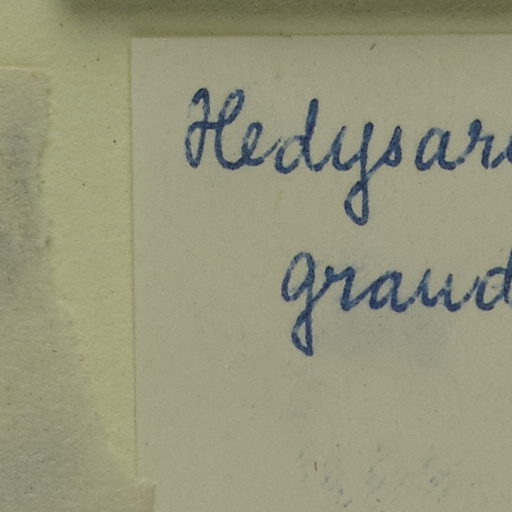 Hedysar
grand